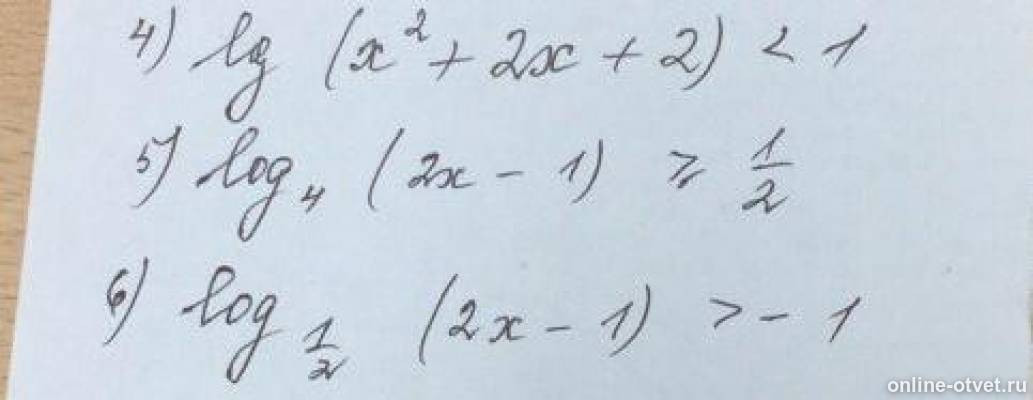 4) lg (x² + 2x + 2) < 1
5) log₄ (2x - 1) ⩾ 1/2
6) log_1/2 (2x - 1) > - 1
online-otvet.ru